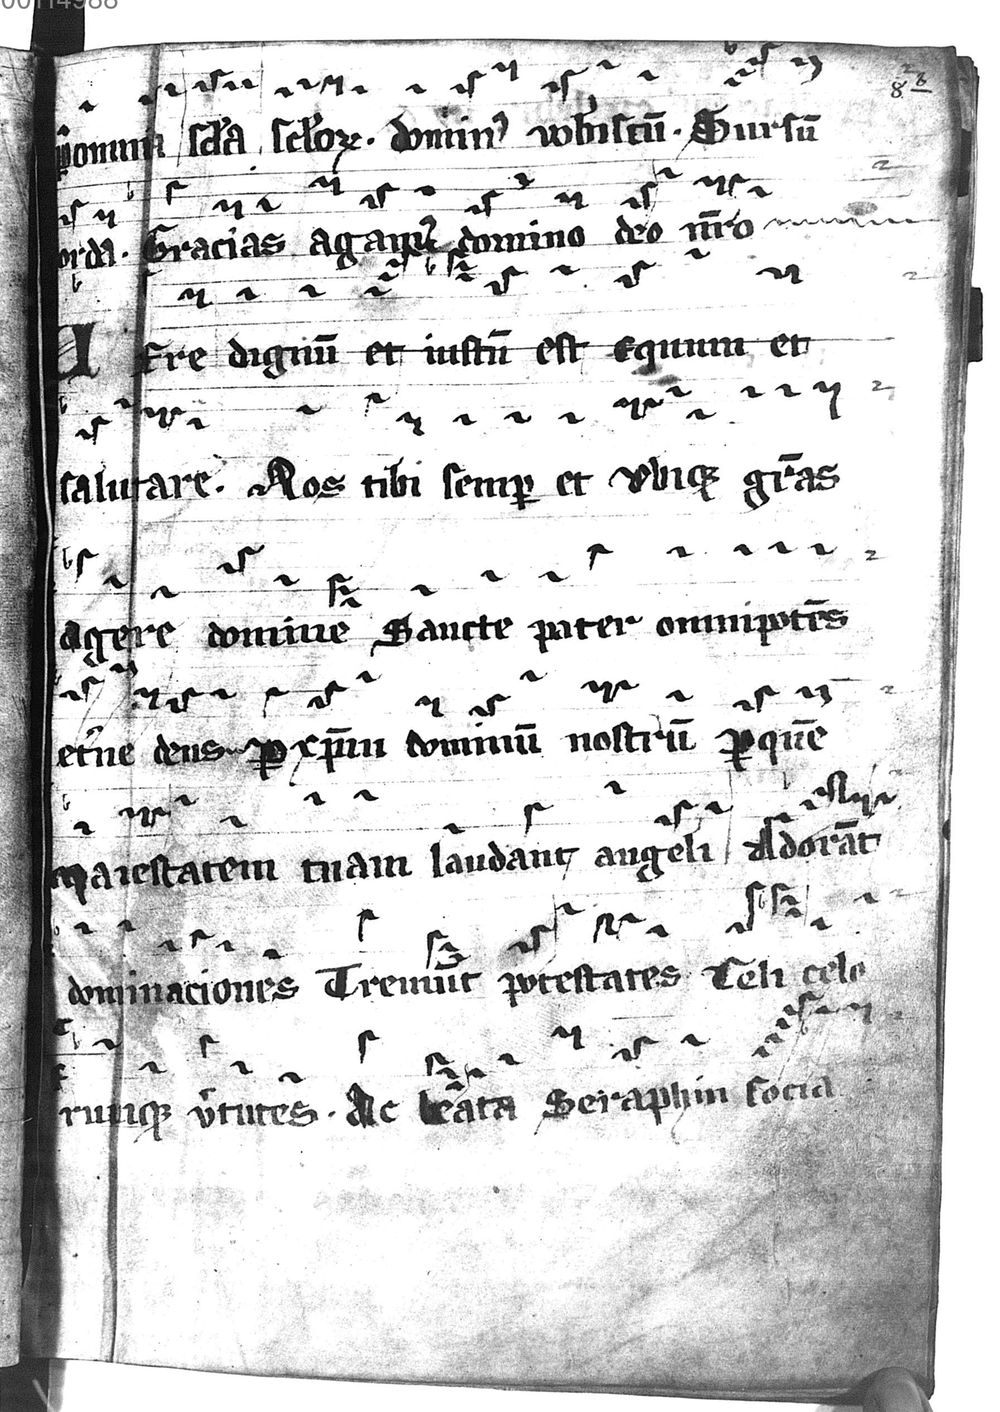 00114988
8 8
omnia scl̄a scl̄oꝝ. domin⁹ vobiscū. Sursū
orda. Gracias agam⁹ domino deo nr̄o
Uere dignū et iustū est Equum et
salutare. Nos tibi semꝑ et vbiqꝫ gr̄as
agere domine Sancte pater omnipotēs
et̄ne deus ꝑ xp̄m dominū nostrū ꝑ quē
maiestatem tuam laudant angeli Adorāt
dominaciones Tremūt potestates Celi celo
rumqꝫ v̄tutes. Ac beata Seraphin socia